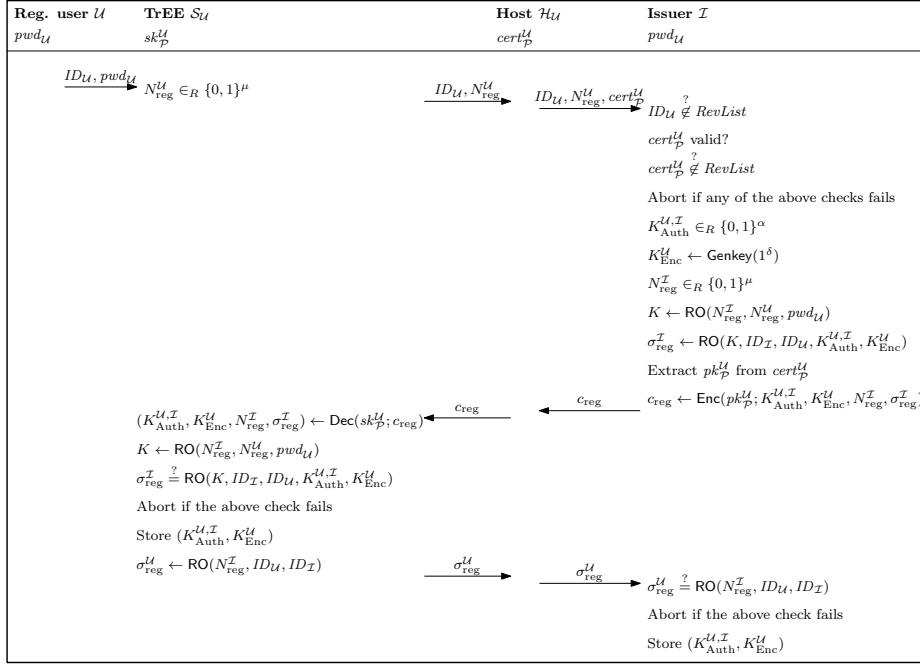 Reg. user 𝒰 TrEE 𝒮_𝒰 Host ℋ_𝒰 Issuer ℐ
pwd_𝒰 sk_𝒫^𝒰 cert_𝒫^𝒰 pwd_𝒰
ID_𝒰, pwd_𝒰
N_reg^𝒰 ∈_R {0, 1}^μ
ID_𝒰, N_reg^𝒰
ID_𝒰, N_reg^𝒰, cert_𝒫^𝒰
ID_𝒰 ∉^? RevList
cert_𝒫^𝒰 valid?
cert_𝒫^𝒰 ∉^? RevList
Abort if any of the above checks fails
K_Auth^{𝒰,ℐ} ∈_R {0, 1}^α
K_Enc^𝒰 ← Genkey(1^δ)
N_reg^ℐ ∈_R {0, 1}^μ
K ← RO(N_reg^ℐ, N_reg^𝒰, pwd_𝒰)
σ_reg^ℐ ← RO(K, ID_ℐ, ID_𝒰, K_Auth^{𝒰,ℐ}, K_Enc^𝒰)
Extract pk_𝒫^𝒰 from cert_𝒫^𝒰
c_reg ← Enc(pk_𝒫^𝒰; K_Auth^{𝒰,ℐ}, K_Enc^𝒰, N_reg^ℐ, σ_reg^ℐ)
c_reg
c_reg
(K_Auth^{𝒰,ℐ}, K_Enc^𝒰, N_reg^ℐ, σ_reg^ℐ) ← Dec(sk_𝒫^𝒰; c_reg)
K ← RO(N_reg^ℐ, N_reg^𝒰, pwd_𝒰)
σ_reg^ℐ =^? RO(K, ID_ℐ, ID_𝒰, K_Auth^{𝒰,ℐ}, K_Enc^𝒰)
Abort if the above check fails
Store (K_Auth^{𝒰,ℐ}, K_Enc^𝒰)
σ_reg^𝒰 ← RO(N_reg^ℐ, ID_𝒰, ID_ℐ)
σ_reg^𝒰
σ_reg^𝒰
σ_reg^𝒰 =^? RO(N_reg^ℐ, ID_𝒰, ID_ℐ)
Abort if the above check fails
Store (K_Auth^{𝒰,ℐ}, K_Enc^𝒰)